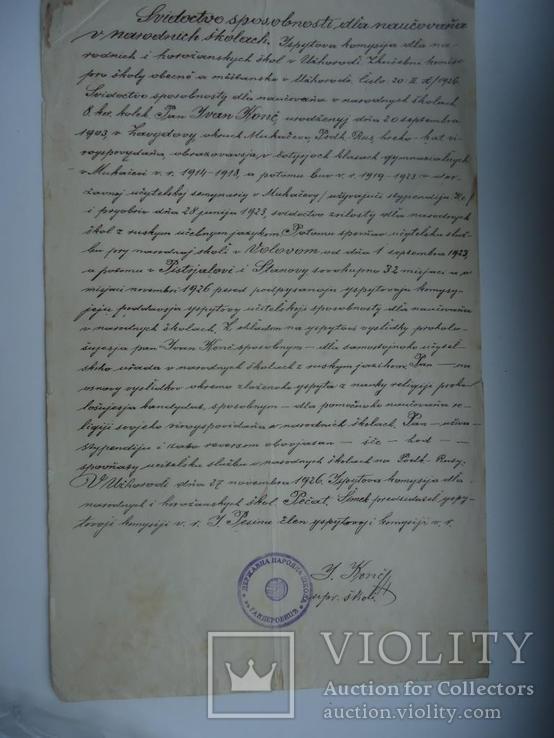 Svidoctvo sposobnosti dla naučovaňa
v narodnich školach. Ispytova komysija dla na-
rodnich i horožanskych škol v Užhorodi. Zkušebni komise
pro školy obecné a měšťanské v Užhorodě. Čislo 20 II z/1926.
Svidoctvo sposobnosty dla naučovaňa v narodnych školach
8 kor. kolek. Pan Ivan Konč urodženyj dňa 20 septembra
1903 v Zavydovy, okruh Mukačevo, Podk. Rus, hreko-kat.
virospovydaňa, obrazovavsja v čotyroch klasach gymnazialnych
v Mukačevi v r. 1914-1918, a potomu buv v r. 1919-1923 v der-
žavnoj učytelskoj semynariy v Mukačevy
i pryobriv dňa 28 junija 1923, svidoctvo zrilosty dla narodnych
škol z ruskym učebnym jazykom. Potomu spovňav učytelsku služ-
bu pry narodnoj školi v Volovom od dňa 1 septembra 1923,
a potomu v Pistrjalovi i Stanovy sovokupno 32 misjaci a v
misjaci novembri 1926 pered podpysanoju ispytovoju komysy-
jeju poddavsja yspytovy učitelskoji sposobnosty dla naučovaňa
v narodnych školach. Z ohladom na yspytovi vyslidky proholo-
šujesja pan Ivan Konč sposobnym - dla samostojnoho učytel-
skoho uřada v narodnych školach z ruskym jazikom. Pan - na
osnovy vyslidkov okremo zloženoho yspyta z nauky religiji proho-
lošujesja kandydat, sposobnym - dla pomočnoho naučovaňa re-
ligiji svojeho virovyspovidaňa v narodnich školach. Pan - užival
stypendiju i zato reversom obovjazan - išče - hod - -
spovňaty učitelsku službu v narodnych školach na Podk. Rusy.
V Užhorodi dňa 27 novembra 1926. Ispytova komysija dla
narodnych i horožanskych škol. Pečat. Šimek predsidatel yspy-
tovoji komysiji v. r. J. Pešina člen yspytovoji komysiji v. r.
I. Konč
upr. školi.
ДЕРЖАВНА НАРОДНА ШКОЛА
VIOLITY
Auction for Collectors
auction.violity.com